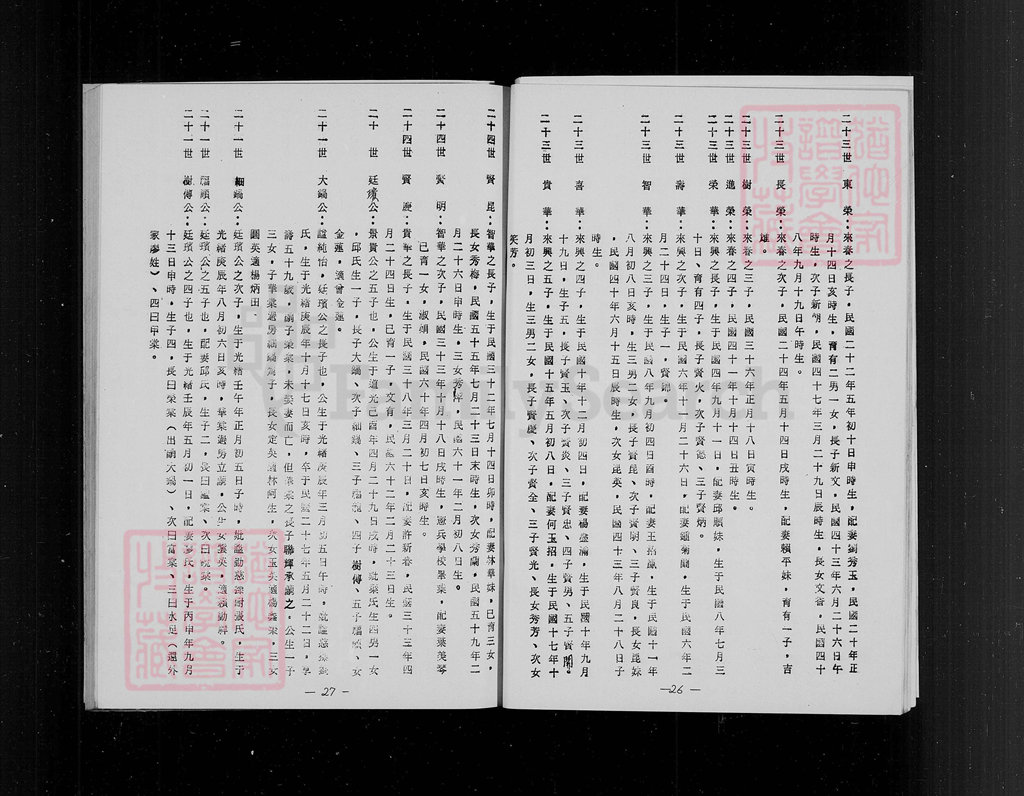 二十三世　東　榮：來春之長子，民國二十二年五年初十日申時生，配妻劉秀玉，民國二十年正
月十四日亥時生，育有二男一女，長子新文，民國四十三年六月二十六日午
時生，次子新明，民國四十七年三月二十九日辰時生，長女文香，民國四十
八年九月十九日午時生。
二十三世　長　榮：來春之次子，民國二十四年五月十四日戌時生，配妻賴平妹，育有一子，吉
雄。
二十三世　樹　榮：來春之三子，民國三十六年正月十八日寅時生。
二十三世　進　榮：來春之四子，民國四十一年十月十四日丑時生。
二十三世　榮　華：來興之長子，生于民國四年九月十一日，配妻邱順妹，生于民國八年七月三
十日、育有四子，長子賢火，次子賢德、三子賢炳。
二十三世　壽　華：來興之次子，生于民國六年十一月二十六日，配妻鍾菊蘭，生于民國六年二
月二十四日，生子一，賢錦。
二十三世　智　華：來興之三子，生于民國八年九月初四日酉時，配妻玉招，生于民國十一年
八月初八日亥時，生三男二女，長子賢昆、次子賢明、三子賢良、長女昆妹
，民國四十年六月十五日辰時生，次女昆英，民國四十三年八月二十八日子
時生。
二十三世　喜　華：來興之四子，生于民國十年十二月初四日，配妻楊盛滿，生于民國十年九月
十九日，生子五，長子賢玉、次子賢炎、三子賢忠、四子賢男、五子賢開。
二十三世　貴　華：來興之五子，生于民國十五年五月初八日，配妻何玉招，生于民國十七年十
月初三日，生三男二女，長子賢慶、次子賢全、三子賢光、長女秀芳、次女
笑芳。
—26—
二十四世　賢　昆：智華之長子，生于民國三十二年七月十四日卯時，配妻林華妹，已育三女，
長女秀梅，民國五十五年七月二十三日未時生，次女秀蘭，民國五十九年二
月二十六日申時生，三女秀萍，民國六十一年二月初八日生。
二十四世　賢　明：智華之次子，民國三十三年十月十八日戌時生，憲兵學校畢業，配妻葉茂琴
已育一女，淑娟，民國六十年四月初七日亥時生。
二十四世　賢　慶：貴華之長子，生于民國三十八年三月二十日，配妻許新春，民國三十三年四
月二十四日生，已育一子文有，民國六十二年二月二十三日生。
二十　世　廷瓊公：景貴公之五子也，公生于道光己酉年四月二十九日戌時，妣梁氏生四男一女
，邱氏生一子，長子大鍋、次子細鍋、三子福龍、四子樹傳、五子福順、女
金蓮，適曾金蓮。
二十一世　大鍋公：諡純怡，廷瓊公之長子也，公生于光緒庚辰年三月初五日午時，妣諡慈
氏，生于光緒庚辰年十月十七日亥時，卒于民國二十七年五月二十二日，享
壽五十九歲，嗣子榮業，未娶妻而亡，但業之長子聯輝承嗣之。公生一子
三女，子華業過房細鍋為子，長女定英適林阿生，次女玉英適楊森榮，三女
園英適楊炳田。
二十一世　細鍋公：廷瓊公之次子，生于光緒壬午年正月初五日子時，妣諡勤慈張氏，生于
光緒庚辰年八月初六日亥時，華業過房立嗣，公生女
二十一世　福順公：廷瓊公之五子也，配妻邱氏，生子二，長曰業、次曰業。
二十一世　樹傳公：廷瓊公之四子也，生于光緒壬辰年五月初一日，配妻氏，生于丙申年九月
十三日申時，生子四，長曰榮業（出嗣大鍋）、次曰富業、三曰水足（還外
家廖姓）、四曰甲業。
—27—